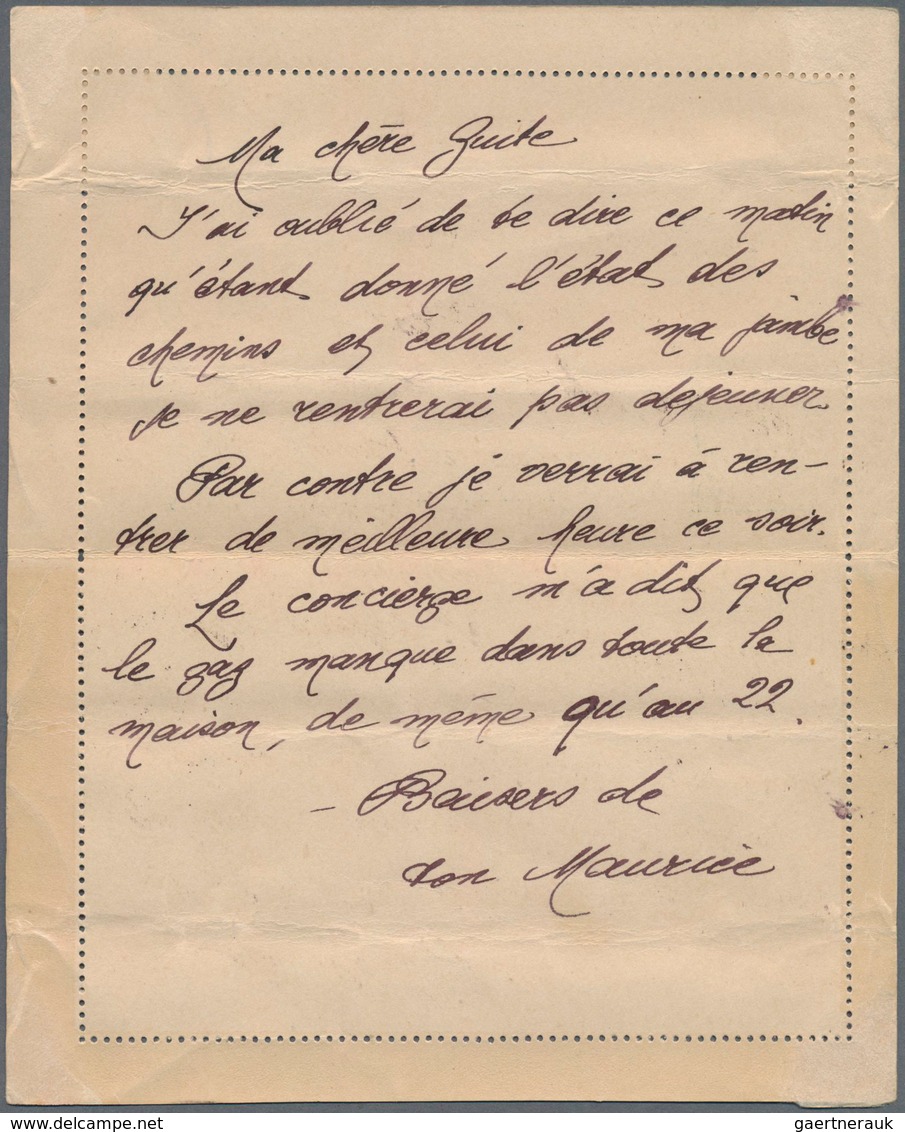 Ma chère Guite
J'ai oublié de te dire ce matin
qu'étant donné l'état des
chemins et celui de ma jambe
je ne rentrerai pas dejeuner
Par contre je verrai à ren-
trer de meilleure heure ce soir.
Le concierge m'a dit que
le gaz manque dans toute la
maison, de même qu'au 22.
- Baisers de
ton Maurice
gaertnerauk @ delcampe.net